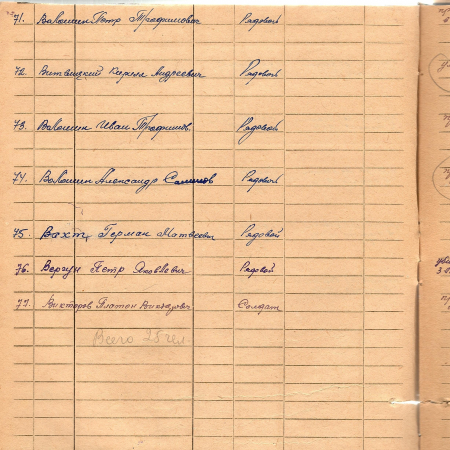 71. Волошин Петр Трофимович Рядовой
72. Витвицкий Кирилл Андреевич Рядовой
73. Волошин Иван Трофимов. Рядовой
74. Волошин Александр Рядовой
75. Вахт, Герман Матвеевич Рядовой
76. Вергун Петр Яковлевич Рядовой
77. Викторов Платон Викторович Солдат
Всего 25 чел